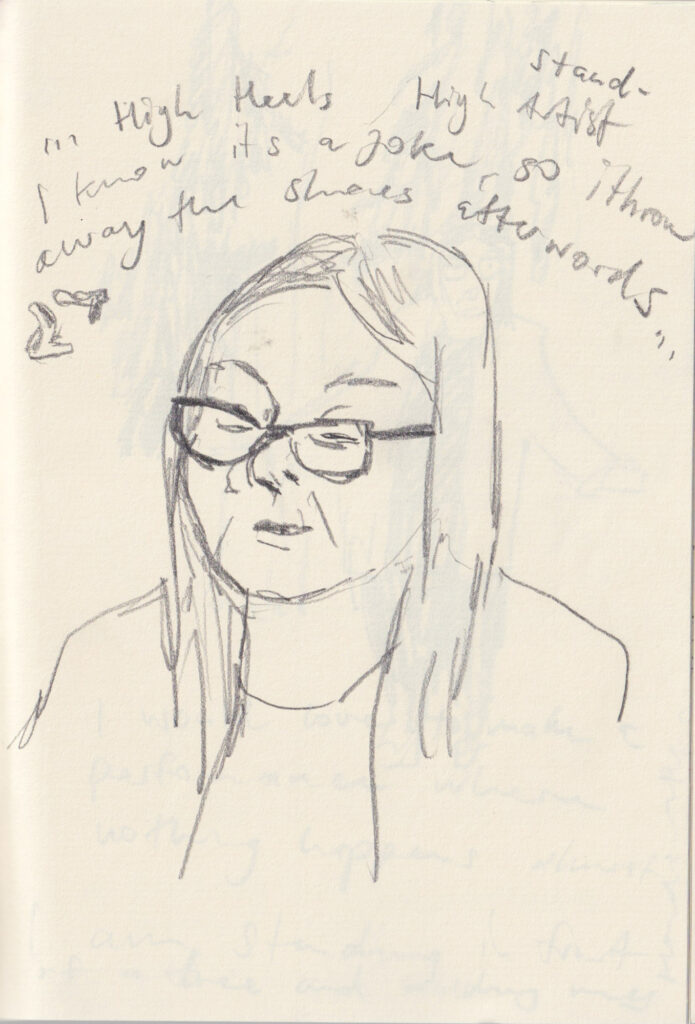 stand-
„, High Heels High Artist
I know it's a joke, so i throw
away the shoes afterwords "
I would love to make a
performance where
nothing happens
I am standing in front
of a tree and